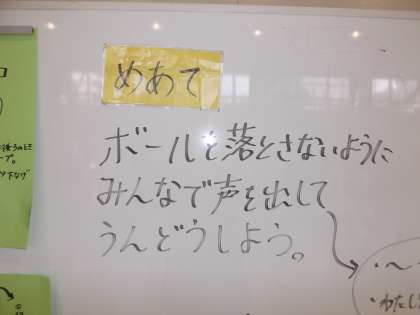 めあて
ボールを落とさないように
みんなで声を出して
うんどうしよう。
・〜
・わたし